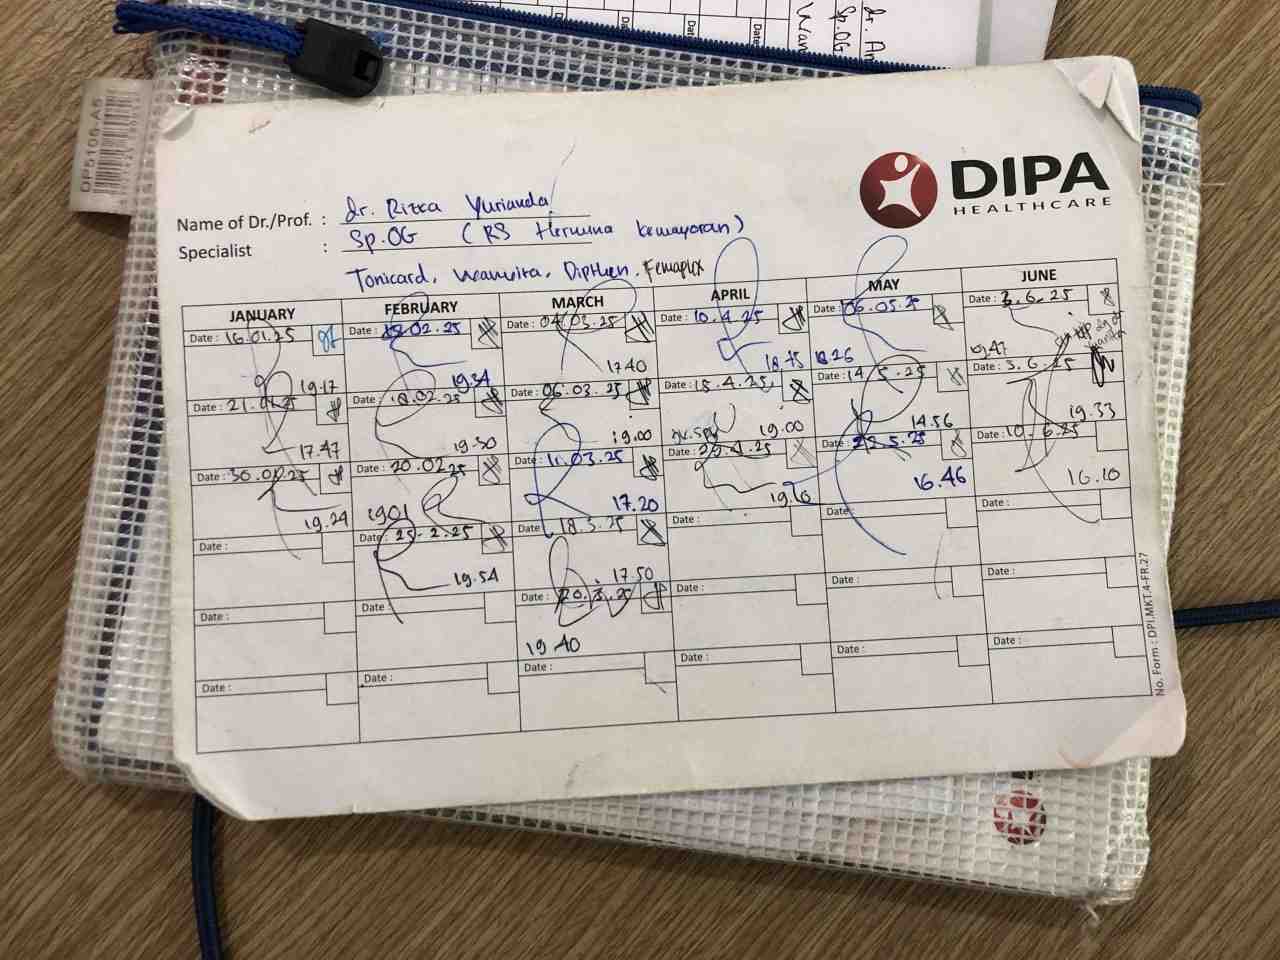 DP5106-A5
Date:
Date:
Date:
Date:
dr. An
Sp.OG
Wran
DIPA
HEALTHCARE
Name of Dr./Prof. : dr. Rizka Yurianda
Specialist : Sp.OG (RS Hermina Kemayoran)
Tonicard, Dipthen, Femaplex
JANUARY FEBRUARY MARCH APRIL MAY JUNE
Date : 16.01.25 Date : 02.25 Date : 04.03.25 Date : 10.4.25 Date : 06.05.25 Date : 3.6.25
19.17 19.34 17.40 18.45 18.26 19.47
Date : 21.01.25 Date : 18.02.25 Date : 06.03.25 Date : 15.4.25 Date : 14.5.25 Date : 3.6.25
17.47 19.30 19.00 19.00 14.56 19.33
Date : 30.01.25 Date : 20.02.25 Date : 11.03.25 Date : 22.4.25 Date : 5.25 Date : 10.6.25
19.29 1901 17.20 19.10 16.46 16.10
Date : Date : 25.2.25 Date : 18.3.25 Date : Date : Date :
19.54 17.50
Date : Date : Date : 20.3.25 Date : Date : Date :
19 40
Date : Date : Date : Date : Date : Date :
No. Form : DPI.MKT.4-FR.27